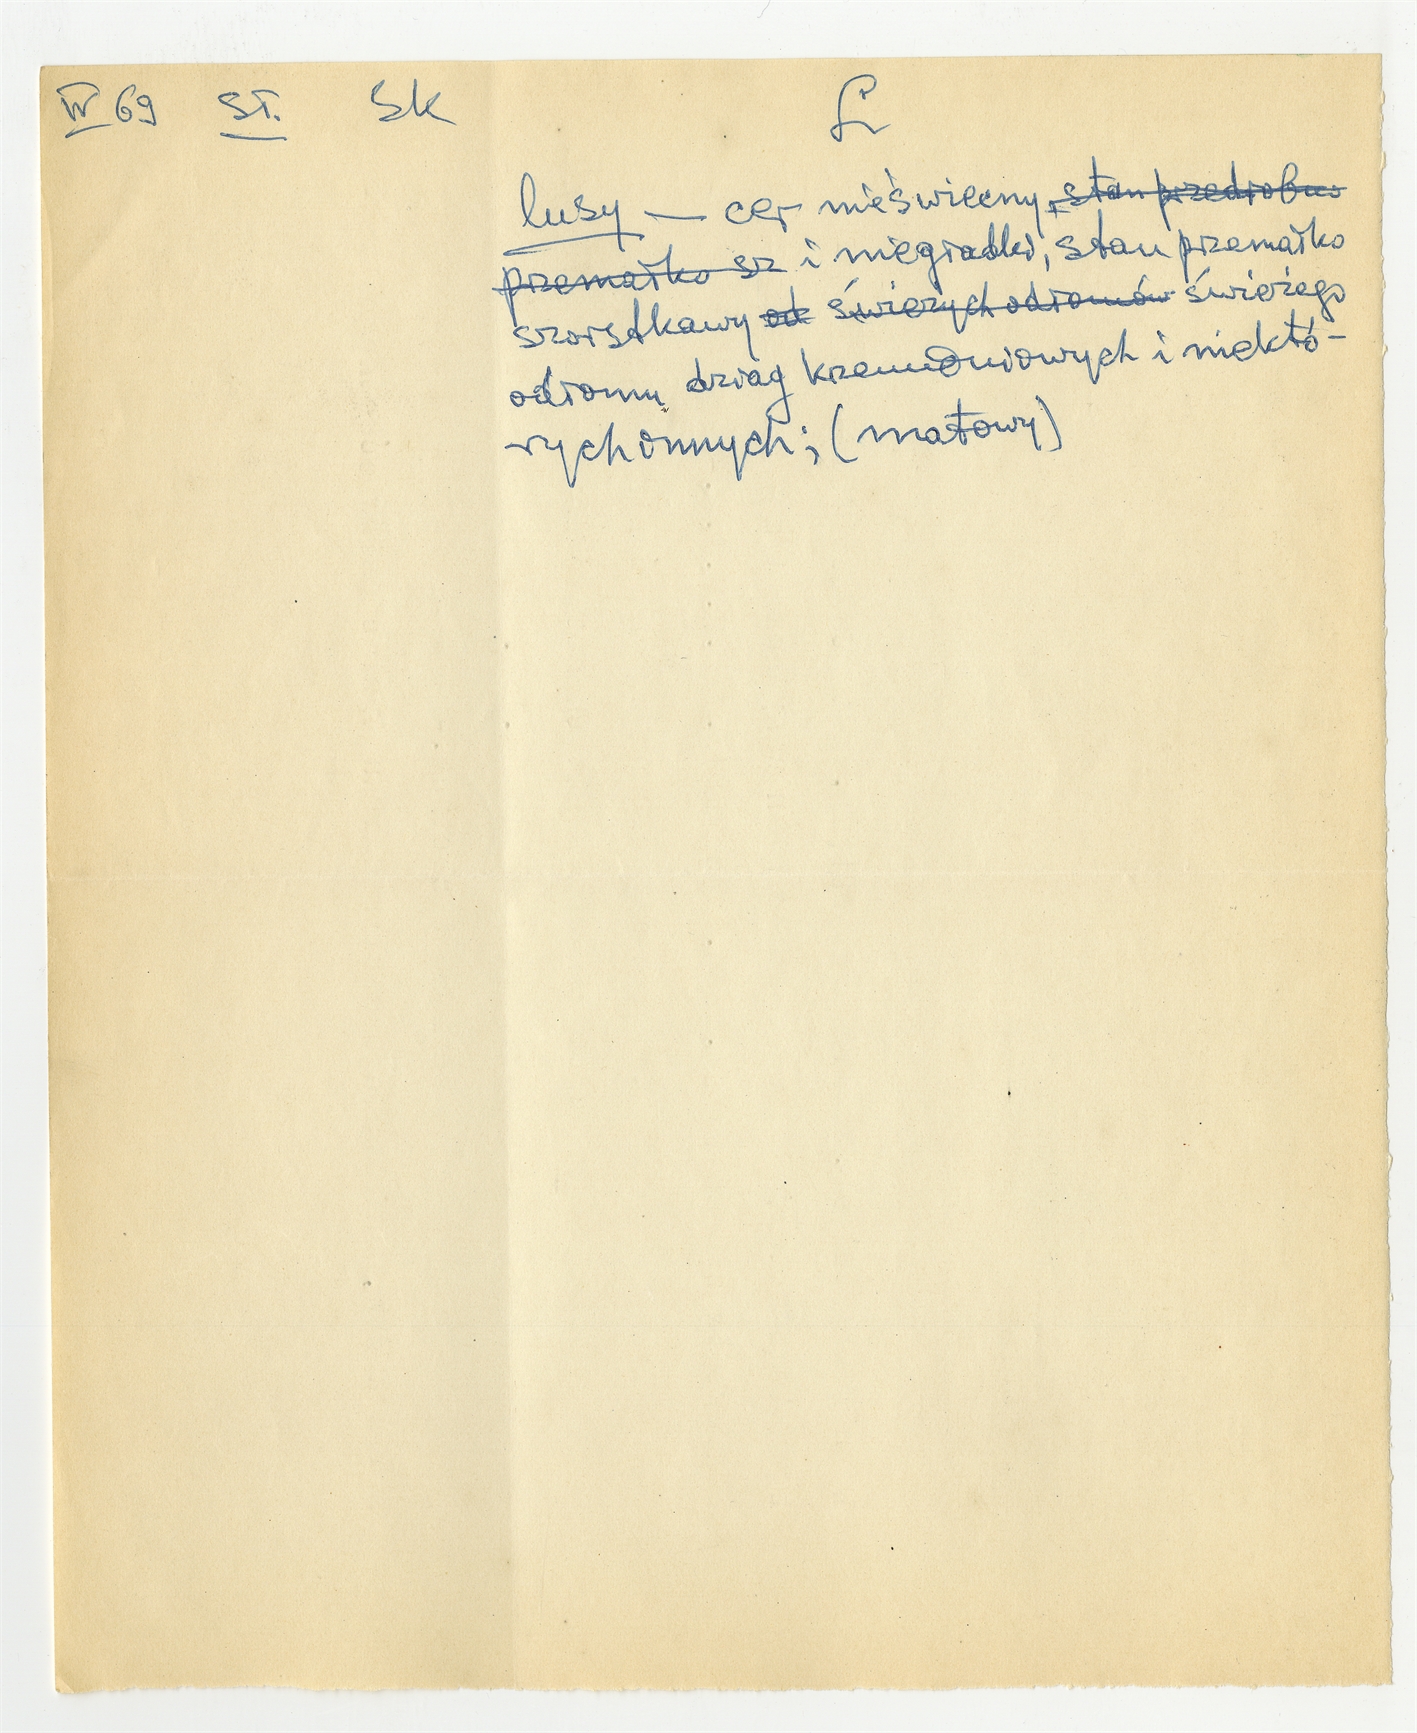 IV 69 ST. SK Ł
lusy — cer nieświecny, stan przedrobno
przemałko sz i niegładki, stan przemałko
szorstkawy od świeżych odłomów świeżego
odłomu dziag krzemoniowych i niektó-
rych innych; (matowy)